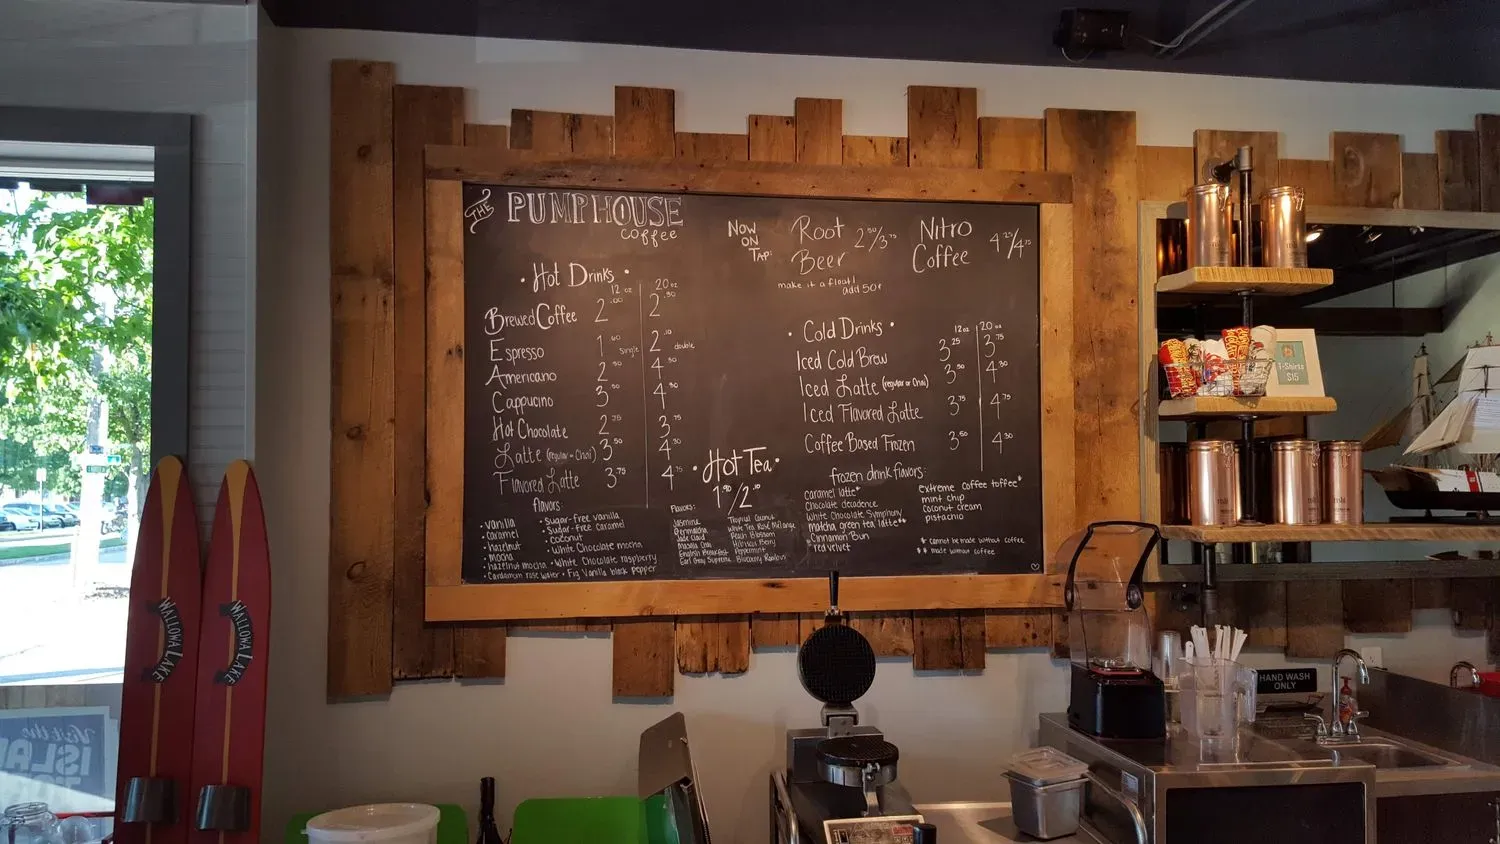 THE PUMPHOUSE
coffee
NOW ON TAP:
Root Beer 2.50/3.75
make it a float! add 50¢
Nitro Coffee 4.25/4.75
• Hot Drinks •
12 oz 20 oz
Brewed Coffee 2.00 2.50
Espresso 1.60 single 2.10 double
Americano 2.50 4.50
Cappucino 3.50 4.50
Hot Chocolate 2.75 3.75
Latte (regular or Chai) 3.50 4.50
Flavored Latte 3.75 4.75
flavors:
• vanilla
• caramel
• hazelnut
• mocha
• hazelnut mocha
• Cardamom rose water
• sugar-free vanilla
• Sugar-free caramel
• coconut
• White Chocolate mocha
• White Chocolate raspberry
• Fig Vanilla black pepper
• Hot Tea •
1.90/2.10
Flavors:
Jasmine
Jade Cloud
Masala Chai
English Breakfast
Earl Grey Supreme
Tropical Coconut
White Tea Rose Melange
Peach Blossom
Hibiscus Berry
Peppermint
Blueberry Rooibos
• Cold Drinks •
12oz 20oz
Iced Cold Brew 3.25 3.75
Iced Latte (regular or Chai) 3.50 4.50
Iced Flavored Latte 3.75 4.75
Coffee Based Frozen 3.50 4.50
frozen drink flavors:
caramel latte*
Chocolate decadence
White Chocolate Symphony
matcha green tea latte**
Cinnamon Bun
*red velvet
extreme coffee toffee*
mint chip
Coconut cream
pistachio
* cannot be made without coffee
** made without coffee
T-Shirts
$15
HAND WASH
ONLY
WALLOWA LAKE
WALLOWA LAKE
Visit the